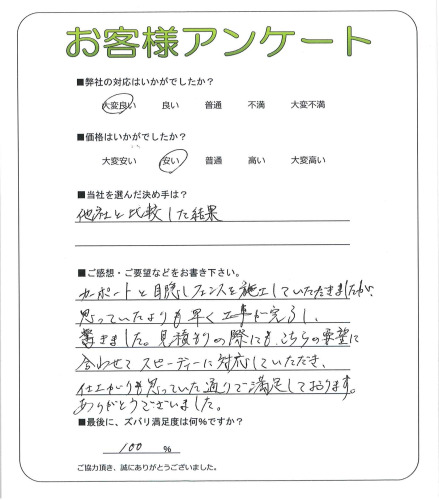 お客様アンケート
■弊社の対応はいかがでしたか？
大変良い 良い 普通 不満 大変不満
■価格はいかがでしたか？
大変安い 安い 普通 高い 大変高い
■当社を選んだ決め手は？
他社と比較した結果
■ご感想・ご要望などをお書き下さい。
カーポートと目隠しフェンスを施工していただきましたが、
思っていたよりも早く工事が完了し、
驚きました。見積もりの際にも、こちらの要望に
合わせてスピーディーに対応していただき、
仕上がりも思っていた通りで満足しております。
ありがとうございました。
■最後に、ズバリ満足度は何％ですか？
100 %
ご協力頂き、誠にありがとうございました。